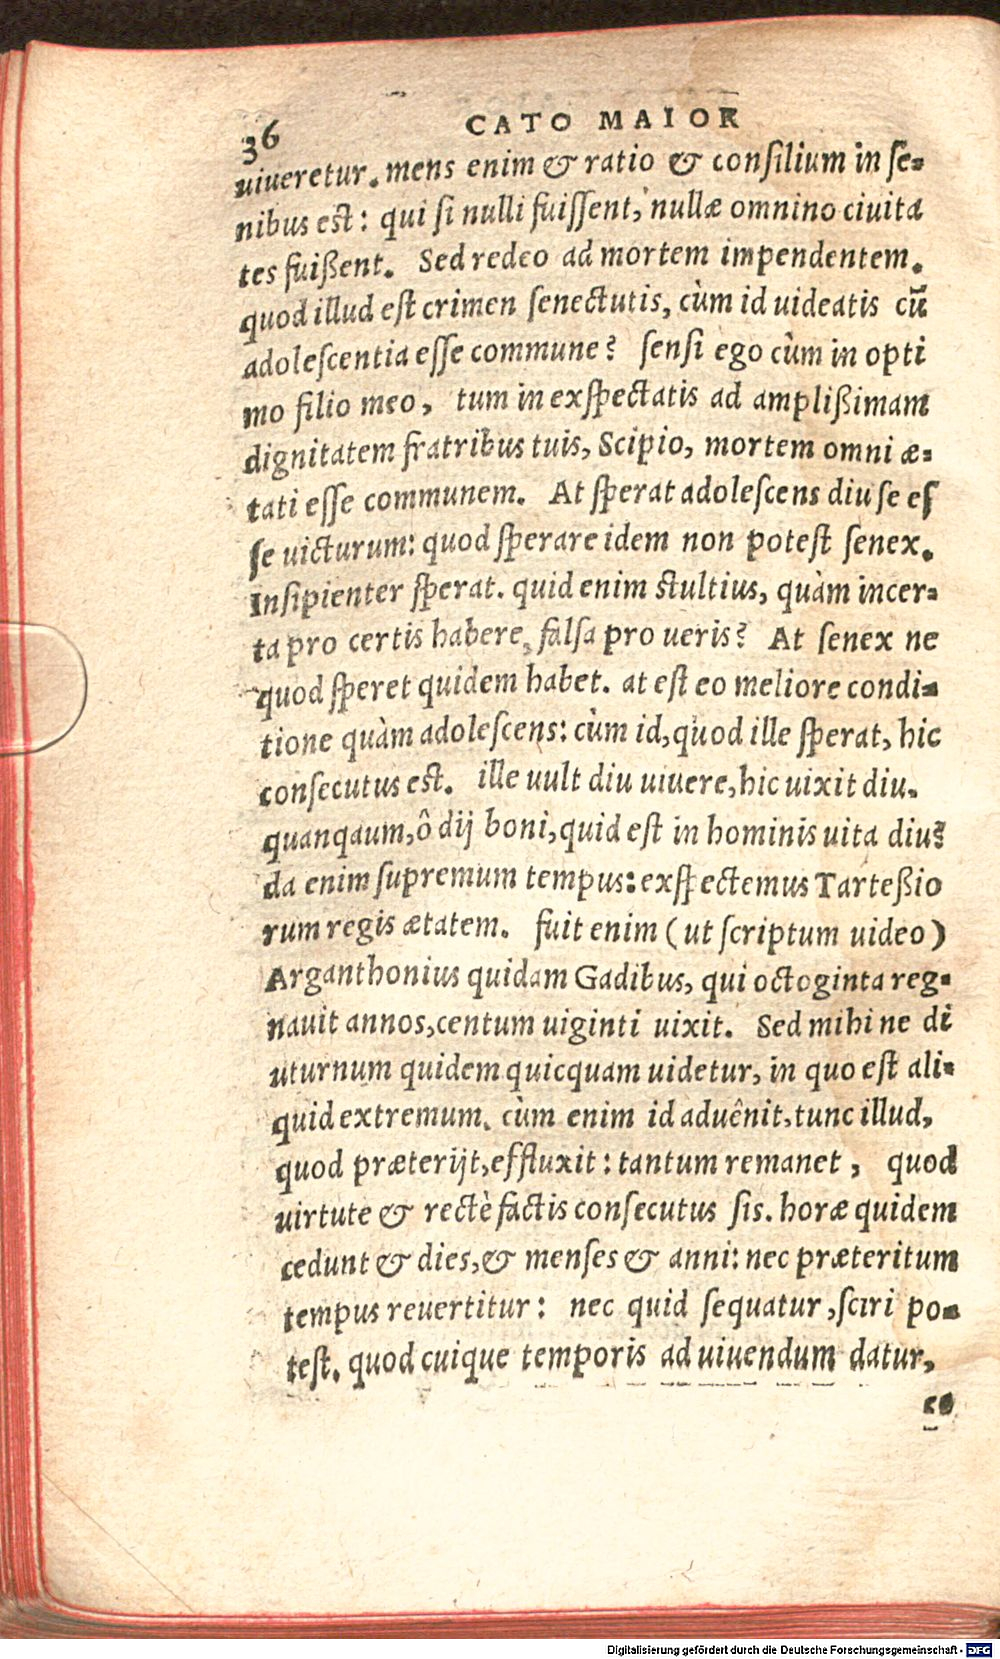 36 CATO MAIOR
uiueretur. mens enim & ratio & consilium in se-
nibus est: qui si nulli fuissent, nullæ omnino ciuita
tes fuißent. Sed redeo ad mortem impendentem.
quod illud est crimen senectutis, cùm id uideatis cū
adolescentia esse commune? sensi ego cùm in opti
mo filio meo, tum in exspectatis ad amplißimam
dignitatem fratribus tuis, Scipio, mortem omni æ-
tati esse communem. At sperat adolescens diu se es
se uicturum: quod sperare idem non potest senex.
Insipienter sperat. quid enim stultius, quàm incer-
ta pro certis habere, falsa pro ueris? At senex ne
quod speret quidem habet. at est eo meliore condi-
tione quàm adolescens: cùm id, quod ille sperat, hic
consecutus est. ille uult diu uiuere, hic uixit diu.
quanqaum, ô dij boni, quid est in hominis uita diu?
da enim supremum tempus: exspectemus Tarteßio
rum regis ætatem. fuit enim (ut scriptum uideo)
Arganthonius quidam Gadibus, qui octoginta reg-
nauit annos, centum uiginti uixit. Sed mihi ne di
uturnum quidem quicquam uidetur, in quo est ali-
quid extremum. cùm enim id aduênit, tunc illud,
quod præterijt, effluxit: tantum remanet, quod
uirtute & rectè factis consecutus sis. horæ quidem
cedunt & dies, & menses & anni: nec præteritum
tempus reuertitur: nec quid sequatur, sciri po-
test. quod cuique temporis ad uiuendum datur,
eo
Digitalisierung gefördert durch die Deutsche Forschungsgemeinschaft - DFG